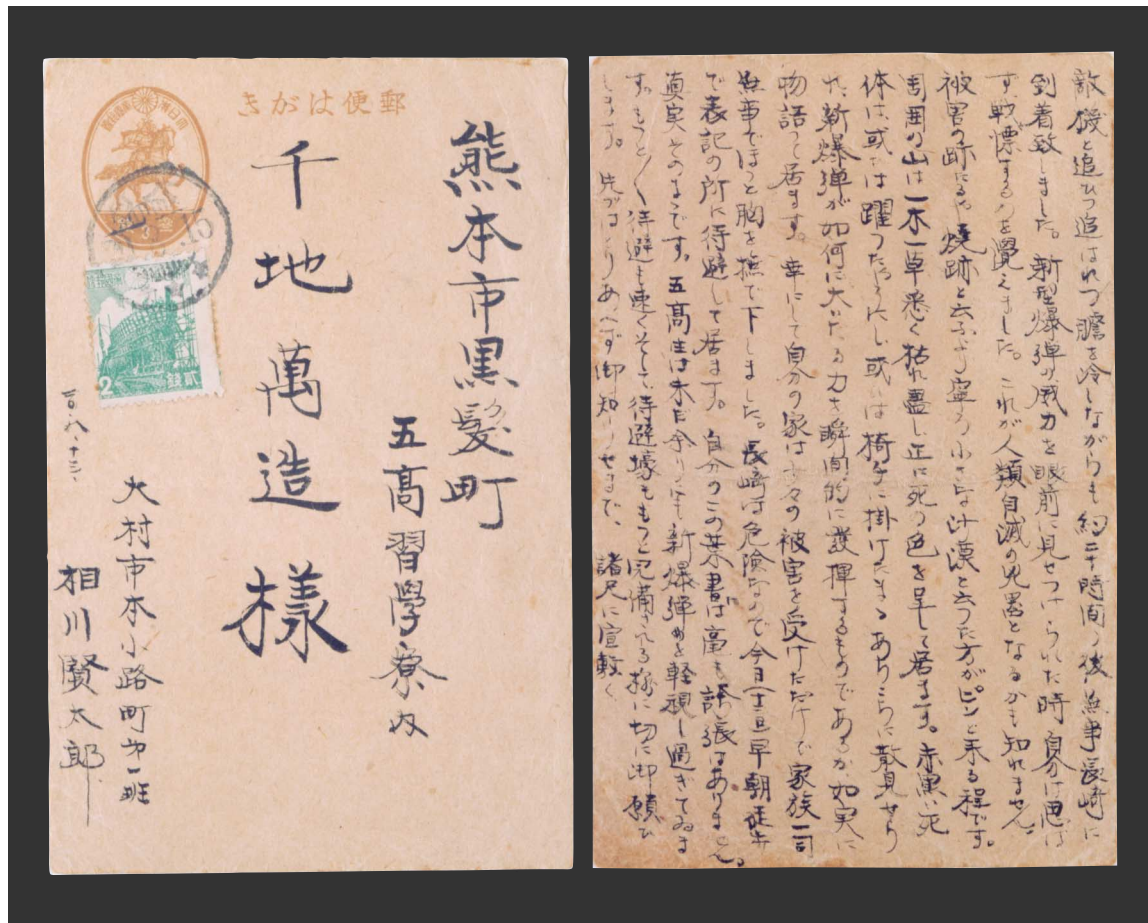 郵便はがき
2
貳錢
熊本市黒髪町
五高習學寮内
千地萬造様
二〇、八、十三、
大村市本小路町第一班
相川賢太郎
敵機と追ひつ追はれつ膽を冷しながらも約二十時間の後無事長崎に
到着致しました。新型爆弾の威力を眼前に見せつけられた時自分は思は
ず、戦慄するのを覺えました。これが人類自滅の兇器となるかも知れません。
被害の跡たるや焼跡と云ふより寧ろ小さな沙漠と云つた方がピンと来る程です。
周囲の山は一木一草悉く枯れ盡し正に死の色を呈して居ます。赤黒い死
体は或は躍つたまゝにし或は椅子に掛けたまゝありこちに散見せら
れ、新爆弾が如何に大いなる力を瞬間的に發揮するものであるか如実に
物語つて居ます。幸にして自分の家は少々の被害を受けただけで家族一同
無事でほつと胸を撫で下しました。長崎は危険なので今日(十三日)早朝徒歩
で表記の所に待避して居ます。自分のこの葉書は毫も誇張はありません。
真実そのまゝです。五高生は未だ余りにも新爆弾を軽視し過ぎてゐま
す。もっと〳〵待避も速くそして待避壕ももっと完備される様に切に御願ひ
します。先づはとりあへず御知らせまで、諸兄に宜敷く